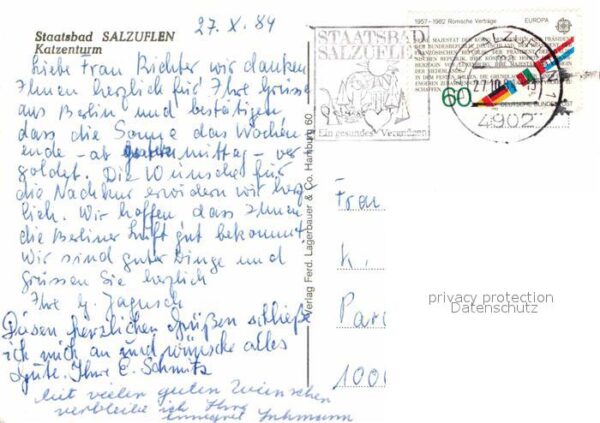 27. X. 84
Staatsbad SALZUFLEN
Katzenturm
Liebe Frau Richter wir danken
Ihnen herzlich für Ihre Grüsse
aus Berlin und bestätigen
dass die Sonne das Wochen
ende - ab mittag - ver
goldet. Die Wünsche für
die Nachkur erwidern wir herz
lich. Wir hoffen, dass Ihnen
die Berliner Luft gut bekommt
Wir sind guter Dinge und
grüssen Sie herzlich
Ihre G. Jagusch
Diesen herzlichen Grüßen schließe
ich mich an und wünsche alles
Gute. Ihre E. Schmitz
Mit vielen guten Wünschen
verbleibe ich Ihre
Verlag Ferd. Lagerbauer & Co. Hamburg 60
STAATSBAD
SALZUFLEN
Ein gesundes Vergnügen
1957-1982 Römische Verträge EUROPA
60
DEUTSCHE BUNDESPOST
27.10
4902
Frau
K.
Pari
1000
privacy protection
Datenschutz